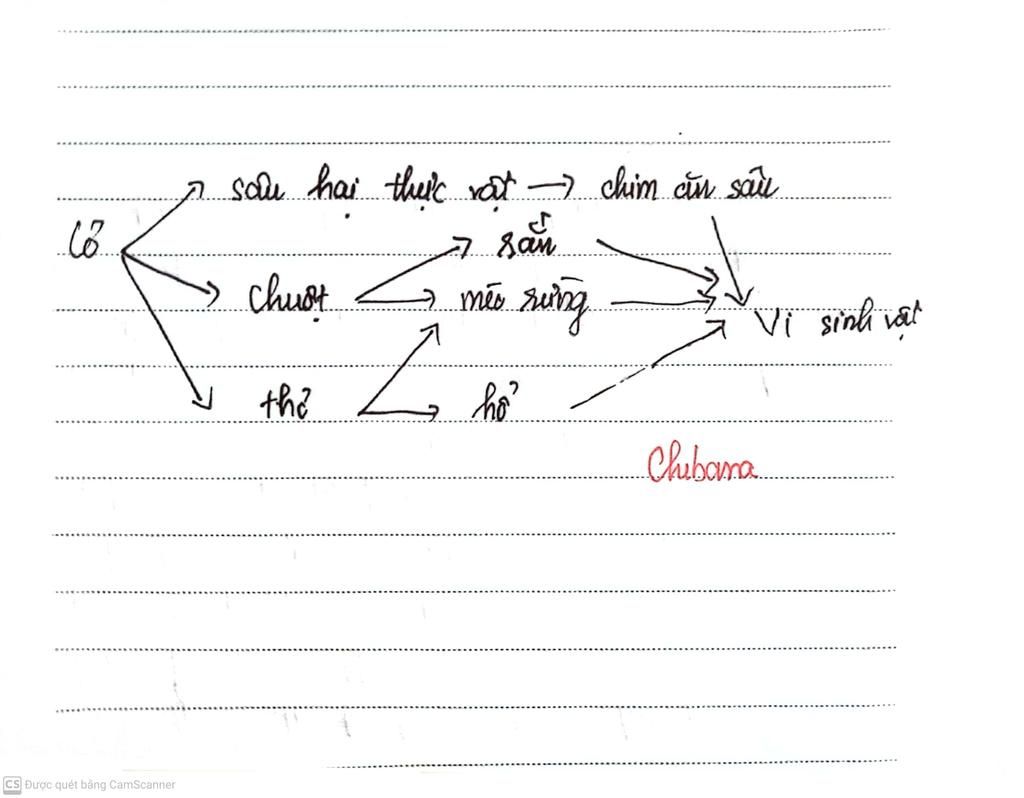 sâu hại thực vật → chim ăn sâu
Cỏ
rắn
chuột mèo rừng
Vi sinh vật
thỏ hổ
Chubara
CS Được quét bằng CamScanner